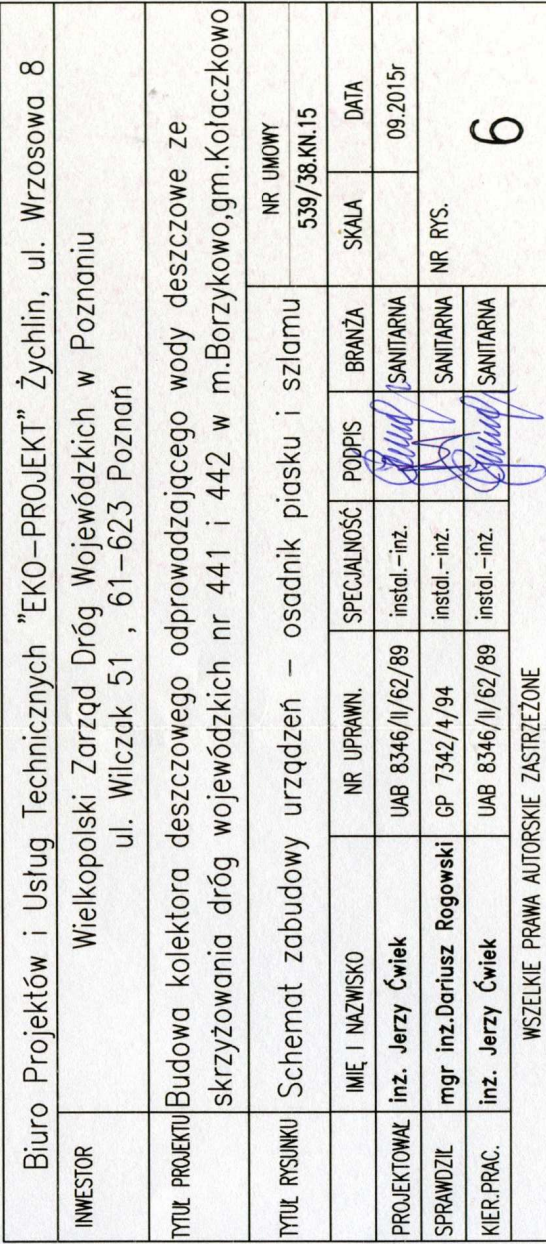 Biuro Projektów i Usług Technicznych "EKO-PROJEKT" Żychlin, ul. Wrzosowa 8
INWESTOR
Wielkopolski Zarząd Dróg Wojewódzkich w Poznaniu
ul. Wilczak 51 , 61-623 Poznań
TYTUŁ PROJEKTU Budowa kolektora deszczowego odprowadzającego wody deszczowe ze
skrzyżowania dróg wojewódzkich nr 441 i 442 w m.Borzykowo,gm.Kołaczkowo
TYTUŁ RYSUNKU Schemat zabudowy urządzeń – osadnik piasku i szlamu
NR UMOWY
539/38.KN.15
IMIĘ I NAZWISKO NR UPRAWN. SPECJALNOŚĆ PODPIS BRANŻA SKALA DATA
PROJEKTOWAŁ inż. Jerzy Ćwiek UAB 8346/II/62/89 instal.-inż. SANITARNA 09.2015r
SPRAWDZIŁ mgr inż.Dariusz Rogowski GP 7342/4/94 instal.-inż. SANITARNA NR RYS.
KIER.PRAC. inż. Jerzy Ćwiek UAB 8346/II/62/89 instal.-inż. SANITARNA 6
WSZELKIE PRAWA AUTORSKIE ZASTRZEŻONE